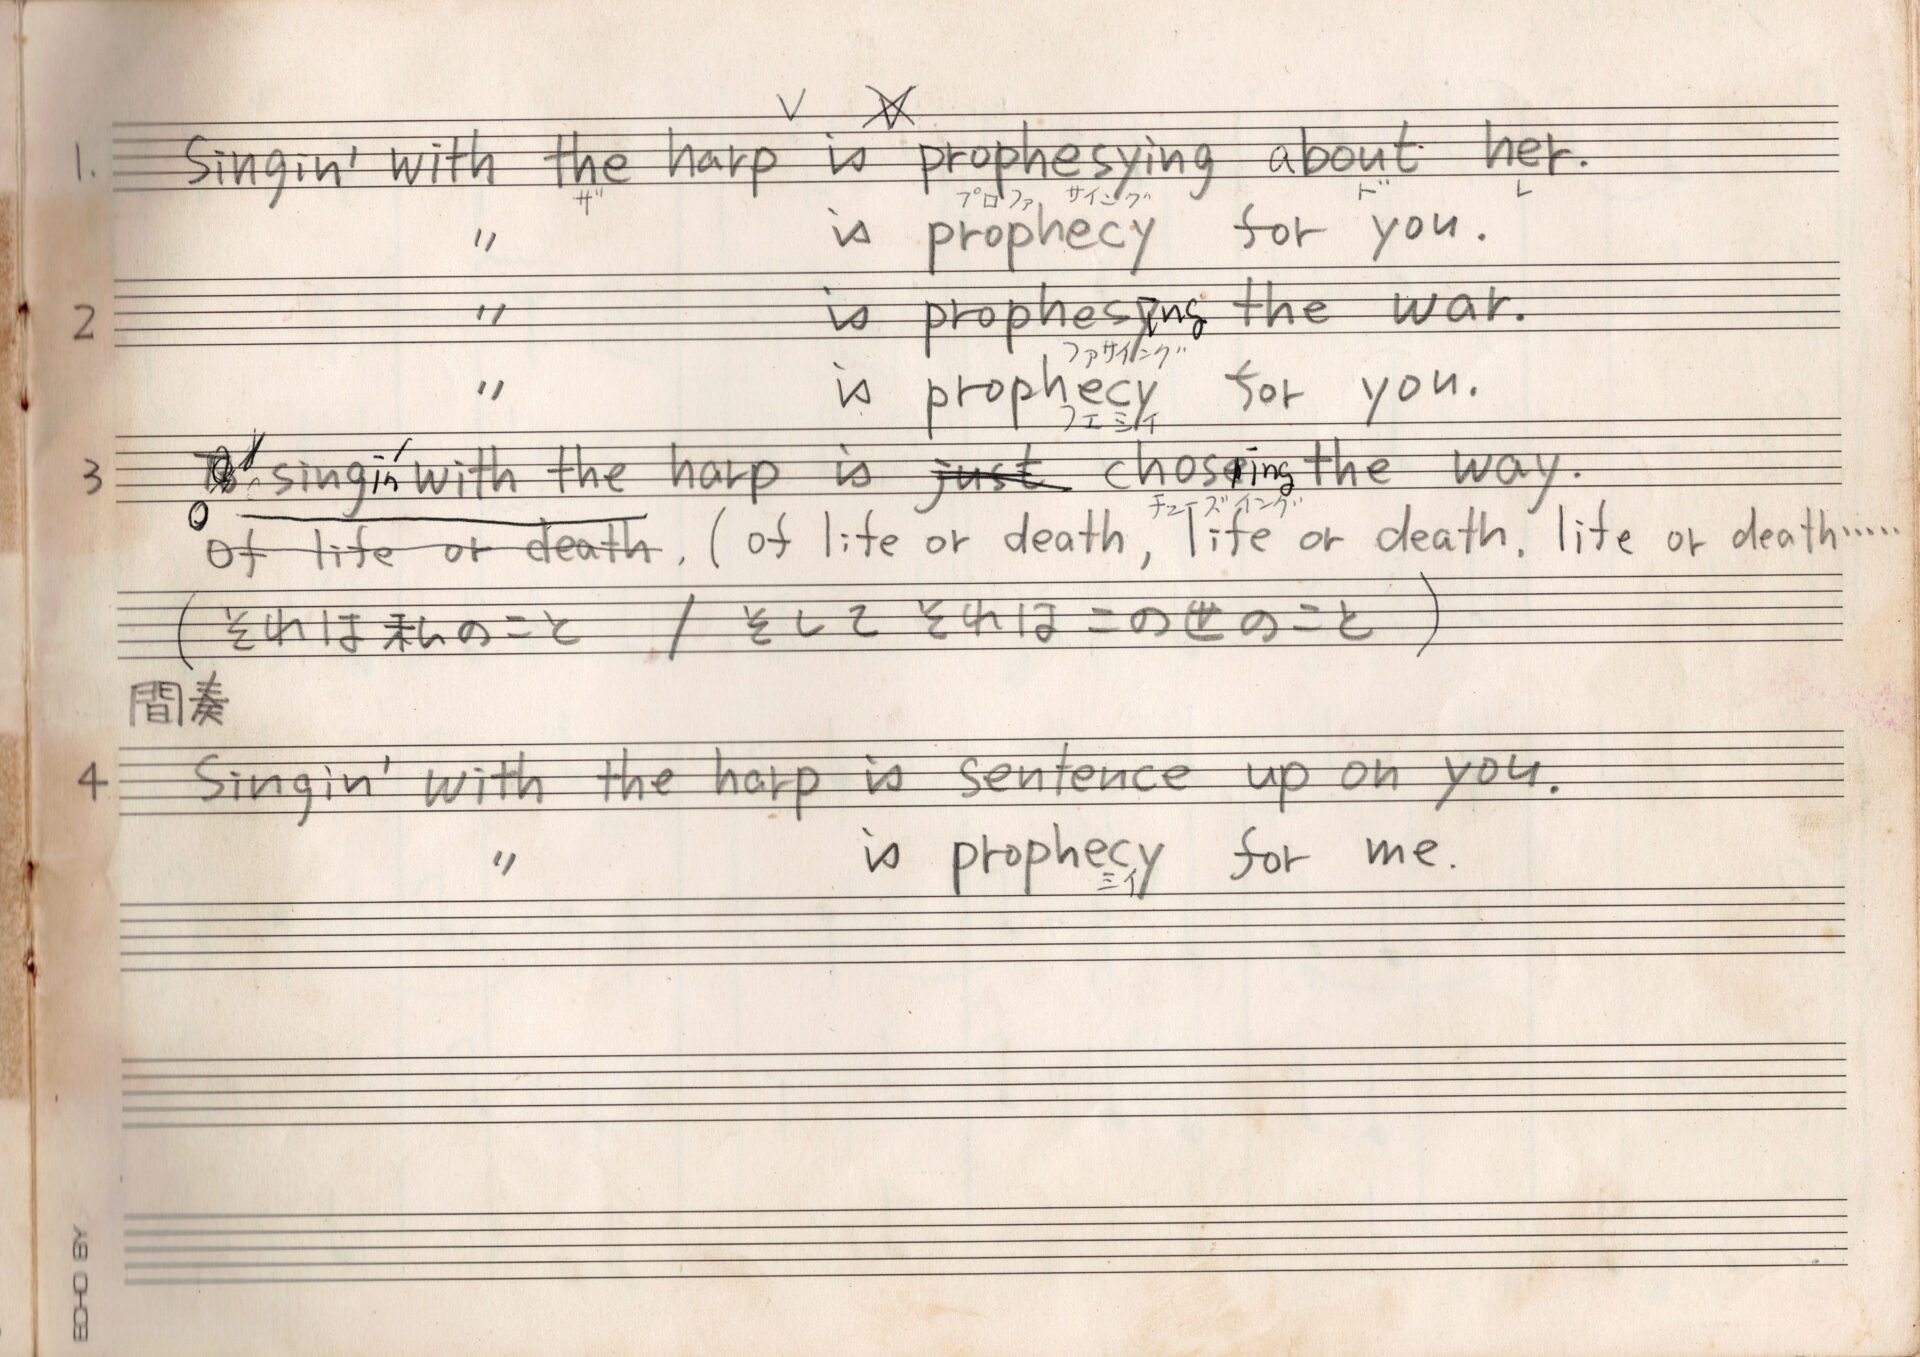 V
1. Singin' with the harp is prophesying about her.
ザ プロファ サイング ド レ
〃 is prophecy for you.
2 〃 is prophesying the war.
ファサイング
〃 is prophecy for you.
フェシイ
3 singin' with the harp is just chosing the way.
チューズイング
of life or death. (of life or death, life or death. life or death……
(それは私のこと / そして それはこの世のこと)
間奏
4 Singin' with the harp is sentence up on you.
〃 is prophecy for me.
シイ
ECHO BY